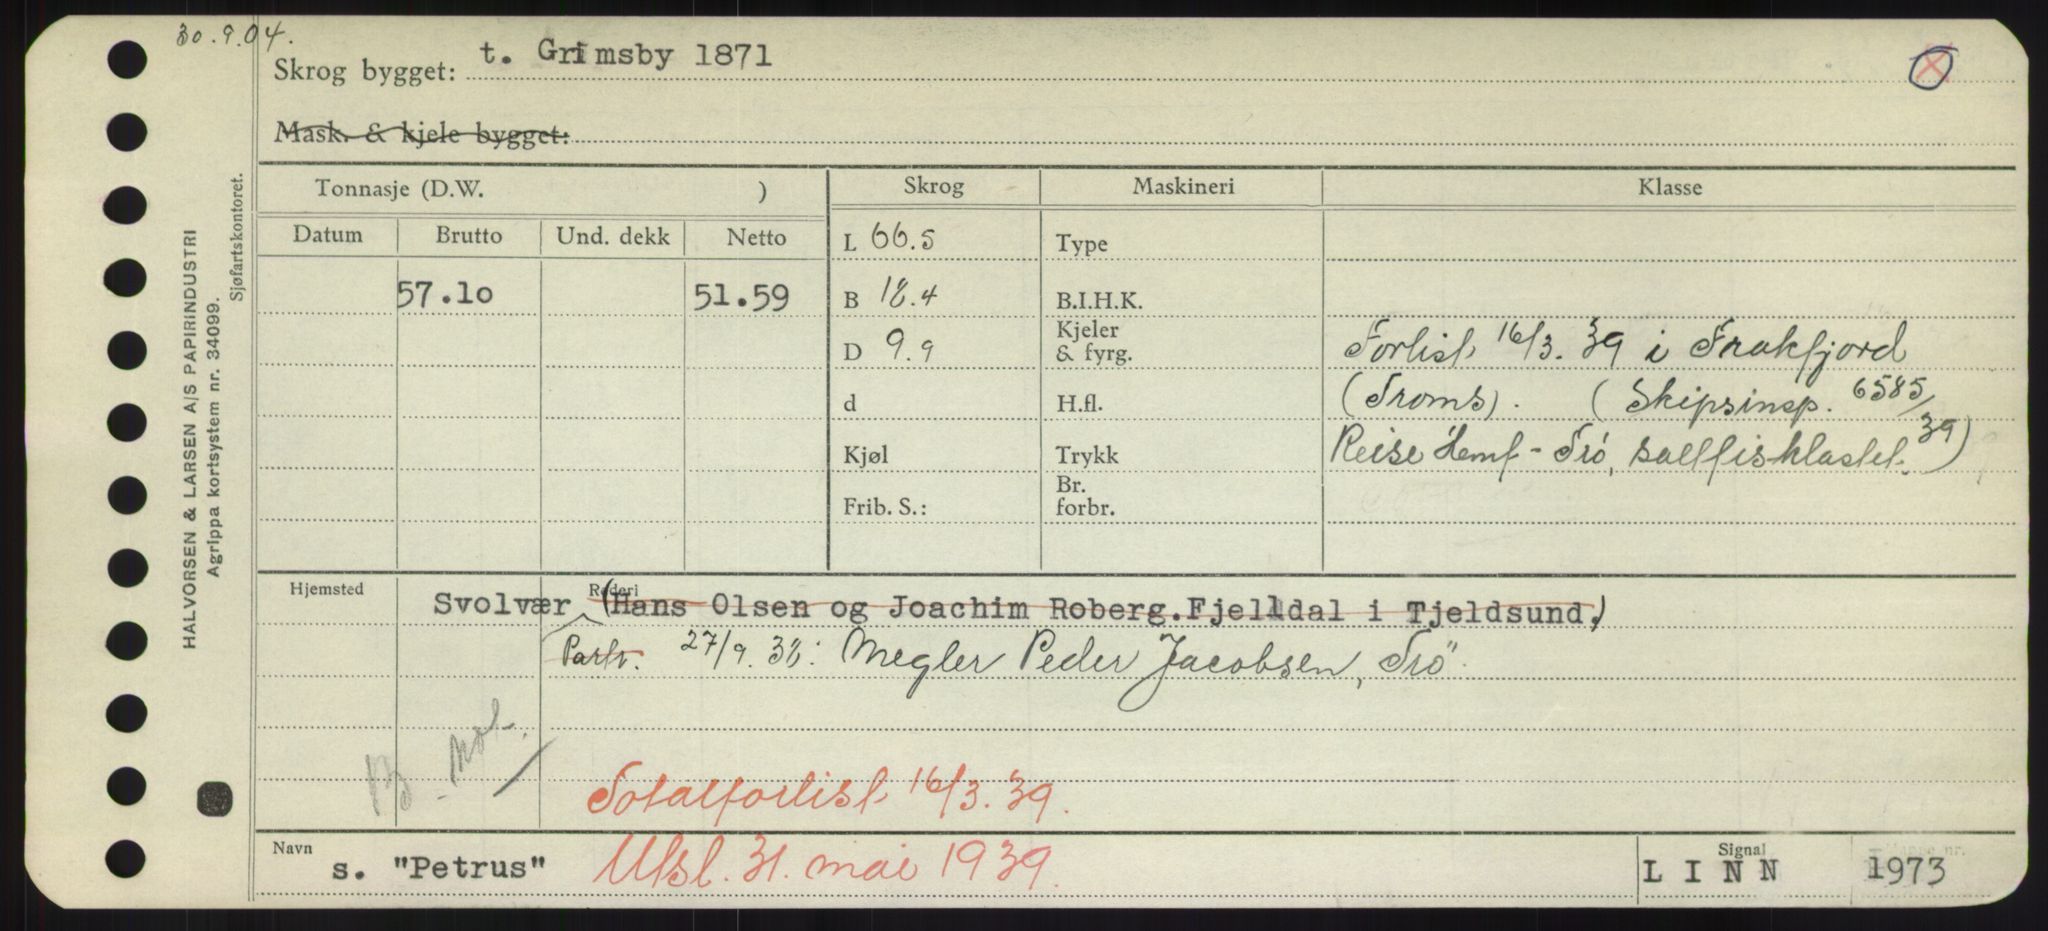 30.9.04.
Skrog bygget: t. Grimsby 1871
Mask. & kjele bygget:
Tonnasje (D.W. )
Skrog
Maskineri
Klasse
Datum
Brutto
Und. dekk
Netto
57.10
51.59
L 66.5
B 18.4
D 9.9
d
Kjøl
Frib. S.:
Type
B.I.H.K.
Kjeler
& fyrg.
H.fl.
Trykk
Br.
forbr.
Forlist 16/3. 39 i Trakfjord
(Troms). (Skipsinsp. 6585/39)
Reise Hemf - Trö, saltfisklastet.
Hjemsted
Rederi
Svolvær (Hans Olsen og Joachim Roberg.Fjelldal i Tjeldsund.)
Partr. 27/9. 38: Megler Peder Jacobsen, Trö.
Totalforlist 16/3. 39.
Navn
s. "Petrus"
Utsl. 31. mai 1939.
Signal
LINN
1973
HALVORSEN & LARSEN A/S PAPIRINDUSTRI
Agrippa kortsystem nr. 34099.
Sjøfartskontoret.